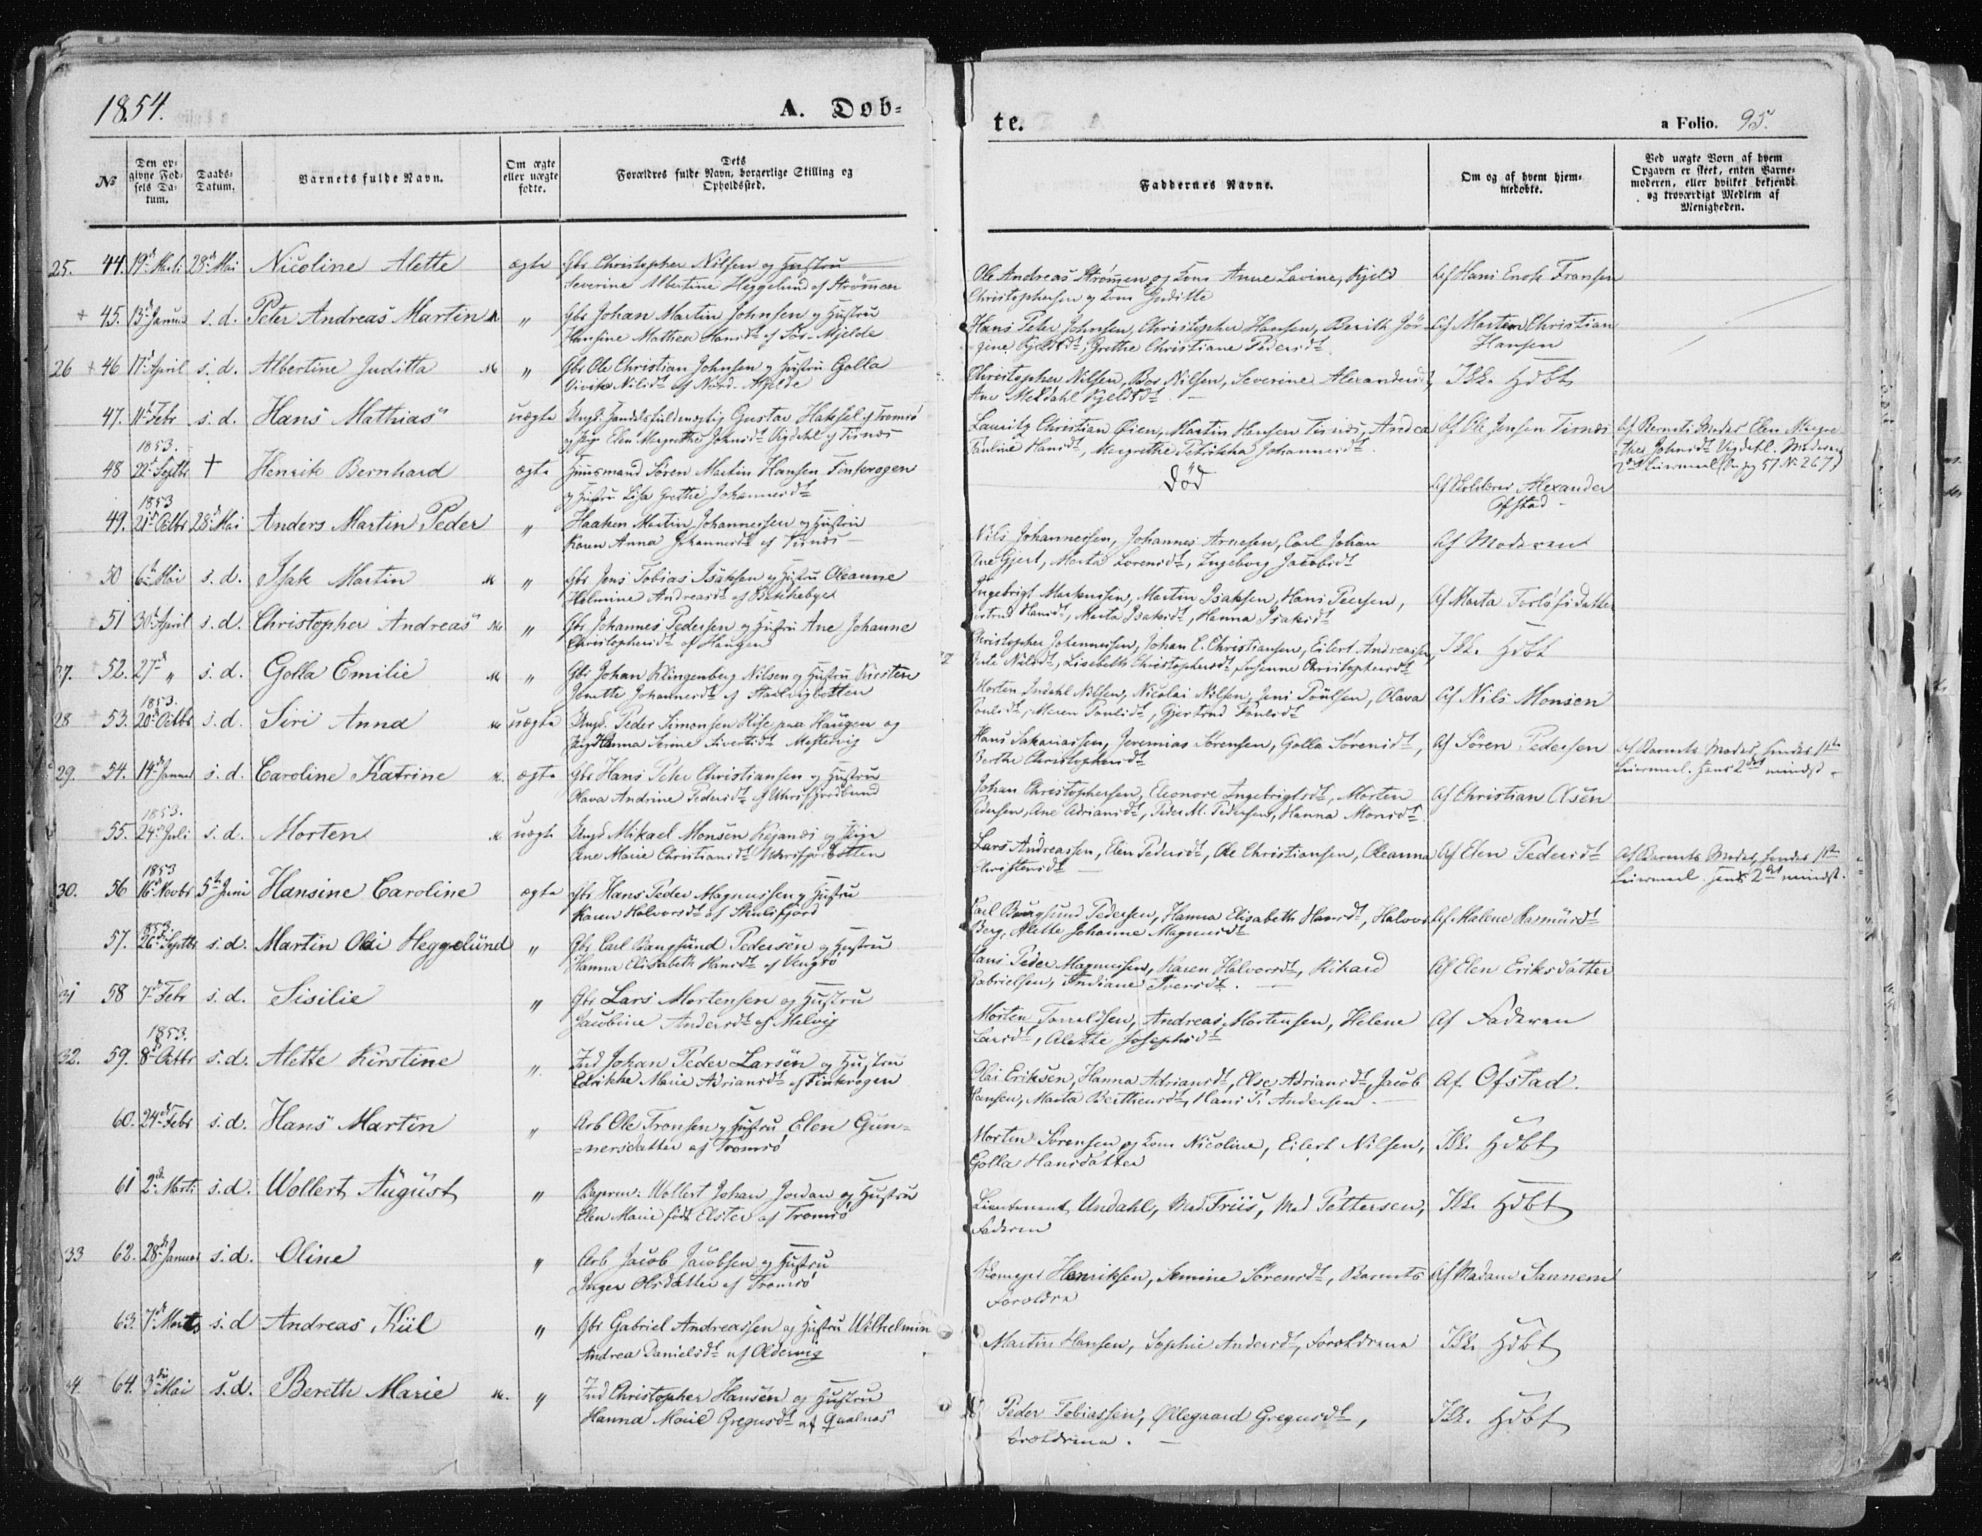 1854.
A. Døb-
te.
a Folio. 95.
№
Den op-
givne Fød-
sels Da-
tum.
Daabs-
Datum.
Barnets fulde Navn.
Om ægte
eller uægte
fødte.
Dets
Forældres fulde Navn, borgerlige Stilling og
Opholdssted.
Faddernes Navne.
Om og af hvem hjem-
medøbte.
Ved uægte Børn af hvem
Opgaven er skeet, enten Barne-
moderen, eller hvilket bekjendt
og troværdigt Medlem af
Menigheden.
25. 44. 19de Marti 28de Mai Nicoline Alette ægte Gbr Christopher Nilsen og Hustru
Severine Albertine Heggelund af Strømmen
Ole Andreas Strømmen og Kone Anne Lavine, Kjeld
Christophersen og Kone Juditte
Af Hans Enok Fransen
+ 45. 13de Januar s. d. Peter Andreas Martin M " Gbr Johan Martin Johnsen og Hustru
Hansine Mathea Hansdt af Sør-Mjelde
Hans Peter Johnsen, Christopher Hansen, Berith Jør-
gine Kjeldsdt, Grethe Christiane Pedersdt.
Af Morten Christian
Hansen
26 + 46 17de April s. d. Albertine Juditta M " Gbr Ole Christian Johnsen og Hustru Golla
Nilsdt af Nord-Mjelde
Christopher Nilsen, Bos Nilsen, Severine Alexandersdt
Ane Meldahl Kjeldsdt.
Ikke Hdbt
47. 11te Febr s. d. Hans Mathias uægte Ungk. Handelsfuldmægtig Gustav Haksel af Tromsø
og Pige Elen Margrethe Johnsdt Vigdehl af Tisnes
Lauritz Christian Øien, Martin Hansen Tisnes, Andrea
Pauline Hansdt, Margrethe Petrikka Johannesdt.
Af Ole Jensen Tisnes
Af Barnets Moder Elen Margre
the Johnsdt Vigdehl. Moderens
Leiermaal (Se pag 57 N. 267)
1853.
48 22de Septbr † Henrik Bernhard ægte Huusmand Søren Martin Hansen Finkrogen
og Hustru Lisa Grethe Johannesdt
Død
Af Kirkesanger Alexander
Ofstad
1853
49. 21de Octbr 28de Mai Anders Martin Peder " Haaken Martin Johannessen og Hustru
Karen Anna Johannesdt af Tisnes
Nils Johannessen, Johannes Arnesen, Carl Johan
Ane Gjert, Marta Lorensdt, Ingeborg Jacobsdt
Af Moderen
50 6te Mai s. d. Isak Martin M " Gbr Jens Tobias Isaksen og Hustru Oleanne
Helmine Andreasdt af Bakkebye
Ingebrigt Markussen, Martin Isaksen, Hans Peersen,
Hansdt, Marta Isaksdt, Hanna Isaksdt
Af Marta Torlofsdatter
51 30te April s. d. Christopher Andreas M " Gbr Johannes Pedersen og Hustru Ane Johanne
Christophersdt af Haugen
Christopher Johannessen, Johan C. Christiansen, Eilert Andreassen,
Nilsdt, Lisebeth Christophersdt, Susanne Christophersdt
Ikke Hdbt
27. + 52. 27de " s. d. Golla Emilie M " Gbr Johan Klingenberg Nilsen og Hustru Kirsten
Jenette Johannesdt af Staalvigbotten
Morten Indahl Nilsen, Nicolai Nilsen, Jens Poulsen, Olava
Poulsdt, Maren Poulsdt, Gjertrud Poulsdt
Af Nils Monsen
1853.
28 + 53. 20de Octbr s. d. Siri Anna M uægte Ungk. Peder Simonsen Rise paa Haugen og
Pige Hanna Serine Sivertsdt Mestervig
Hans Sakariassen, Jeremias Sørensen, Golla Sørensdt,
Berthe Christophersdt
Af Søren Pedersen
Af Barnets Moder, hendes 1ste
Leiermaal. hans 2det mindst.
29. + 54. 14de Januar s. d. Caroline Katrine M. ægte Gbr Hans Peter Christiansen og Hustru
Olava Andrine Pedersdt af Ulvsfjordbund
Johan Christophersen, Eleonore Ingebrigtsdt, Morten
Pedersen, Ane Adriansdt, Peder M. Pedersen, Hanna Monsdt
Af Christian Olsen
1853.
55. 24de Juli s. d. Morten M uægte Ungk Mikael Monsen og Pige
Ane Marie Christiansdt Ulvsfjordbotten
Lars Andreassen, Elen Pedersdt, Ole Christiansen, Oleanna
Christensdt
Af Elen Pedersdt
Af Barnets Moder, hendes 1ste
Leiermaal. hans 2det mindst.
1853
30. 56 16de Novbr 5te Juni Hansine Caroline ægte Gbr Hans Peder Magnussen og Hustru
Karen Halvorsdt af Skulsfjord
Carl Bangsund Pedersen, Hanna Elisabeth Hansdt, Halvor
Berg, Alette Johanne Magnusdt
Af Malene Rasmusdt
1853.
57. 26de Septbr s. d. Martin Olai Heggelund " Gbr Carl Bangsund Pedersen og Hustru
Hanna Elisabeth Hansdt af Vengsø
Hans Peder Magnussen, Karen Halvorsdt, Rikard
Gabrielsen, Indiane Iversdt.
Af Elen Eriksdatter
31 58 7de Febr s. d. Sisilie " Gbr Lars Mortensen og Hustru
Jacobine Andersdt af Melvig
Morten Torreldsen, Andreas Mortensen, Helene
Larsdt, Alette Josephsdt
Af Faderen
1853.
32. 59. 8de Octbr s. d. Alette Kirstine " Ind Johan Peder Larsen og Hustru
Edrikke Marie Adriansdt af Finkrogen
Olai Eriksen, Hanna Adriansdt, Else Adriansdt, Jacob
Hansen, Marta Berthiensdt, Hans P. Andersen.
Af Ofstad
60. 24de Febr s. d. Hans Martin " Arb Ole Tronsen og Hustru Elen Gun-
-nersdatter af Tromsø
Morten Sørensen og Kone Nicoline, Eilert Nilsen,
Golla Hansdatter
Ikke Hdbt
61 2de Marti s. d. Wollert August " Wollert Johan Jordan og Hustru
Elen Marie født Elster af Tromsø
Lieutenant Undahl, Mad Friis, Mad Pettersen,
Faderen
Ikke Hdbt
33 62. 28de Januar s. d. Oline " Arb Jacob Jacobsen og Hustru
Inger Olsdatter af Tromsø
Henriksen, Semine Sørensdt, Barnets
Forældre
Af Madame Sannem
63. 7de Marts s. d Andreas Kiil " Gbr Gabriel Andreassen og Hustru Wilhelmin
Andrea Danielsdt af Oldervig
Martin Hansen, Sophie Andersdt, Forældrene
Ikke Hdbt
34. + 64. 3die Mai s. d. Bereth Marie M. " Ind Christopher Hansen og Hustru
Hanna Marie Gregusdt af Qvalnæs
Peder Tobiassen, Øllegaard Gregusdt,
Forældrene.
Ikke Hdbt